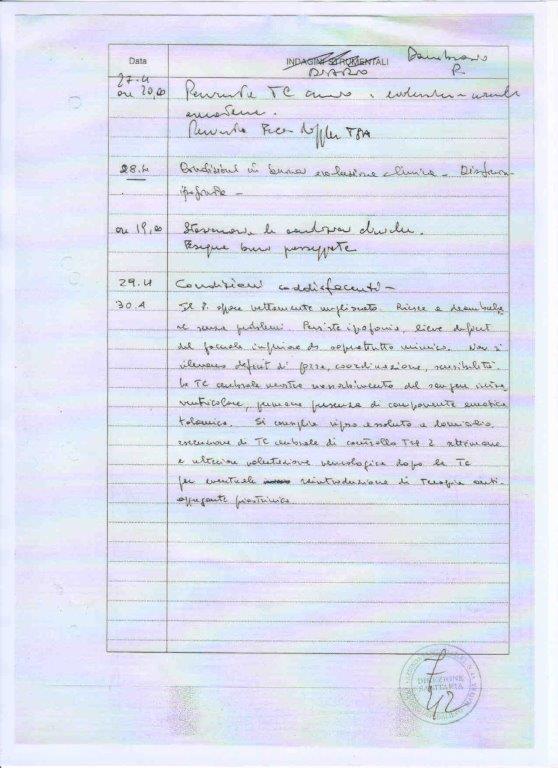 Data INDAGINI STRUMENTALI
DIARIO R.
27.4
ore 20,00 TC
Doppler TSA
28.4 Condizioni in buona evoluzione clinica -
ipofonia -
ore 19,00 Stazionarie le condizioni cliniche.
Esegue brevi passeggiate
29.4 Condizioni soddisfacenti -
30.4 Il P. appare nettamente migliorato. Riesce a deambula
re senza problemi. Persiste ipofonia, lieve deficit
del facciale inferiore ds soprattutto mimico. Non si
rilevano deficit di forza, coordinazione, sensibilità.
La TC cerebrale mostra riassorbimento del sangue intra
ventricolare, permane presenza di componente ematica
talamica. Si consiglia riposo assoluto a domicilio,
esecuzione di TC cerebrale di controllo tra 2 settimane
e ulteriore valutazione neurologica dopo la TC
per eventuale reintroduzione di terapia anti
aggregante piastrinica
DIREZIONE
SANITARIA
7/42